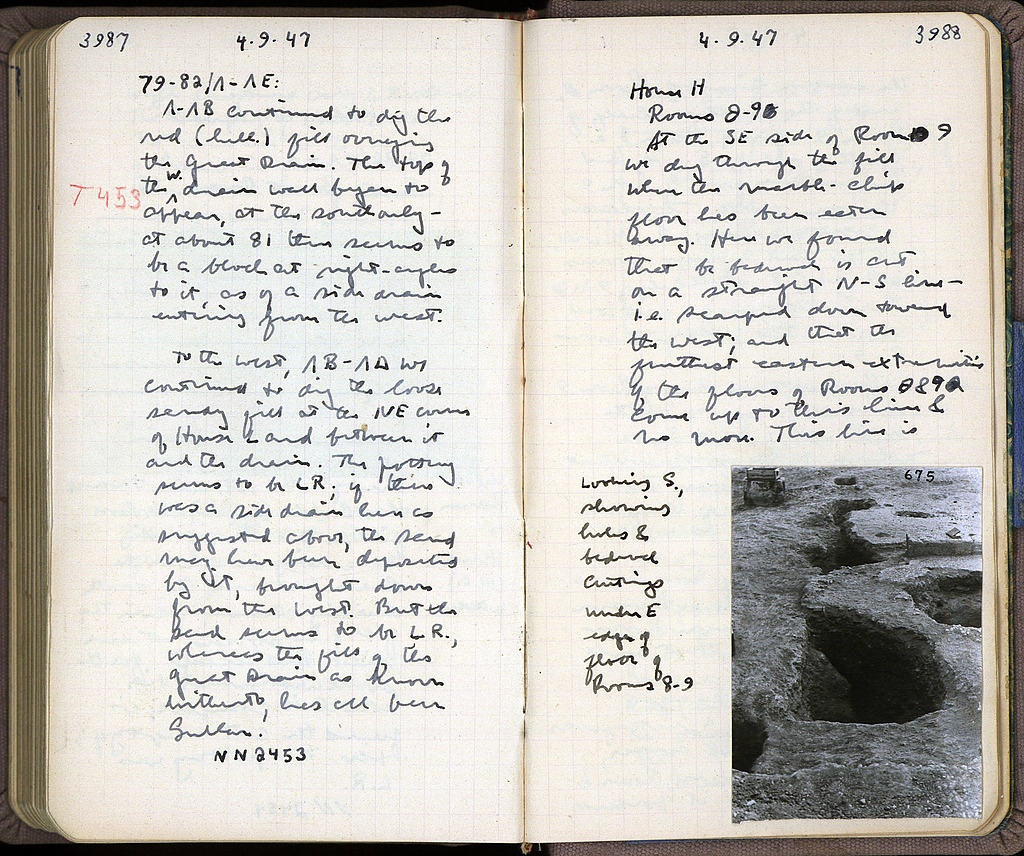 3987
4.9.47
79-82/Λ-ΛE:
Λ-ΛB continued to dig the
red (hell.) fill overlying
the Great Drain. The top of
the W. drain wall began to
T 453
appear, at the south only -
at about 81 there seems to
be a block at right-angles
to it, as of a side drain
entering from the west.
To the west, ΛB-ΛΔ we
continued to dig the loose
sandy fill at the NE corner
of House L and between it
and the drain. The pottery
seems to be LR; if there
was a side drain here as
suggested above, the sand
may have been deposited
by it, brought down
from the west. But the
sand seems to be LR.,
whereas the fill of the
Great Drain as known
hitherto, has all been
Sullan.
NN 2453
4.9.47
3988
House H
Rooms 8-9
At the SE side of Room 9
we dug through the fill
where the marble-chip
floor has been eaten
away. Here we found
that be bedrock is cut
on a straight N-S line -
i.e. scarped down toward
the west; and that the
furthest eastern extremities
of the floors of Rooms 8&9
come up to this line &
no more. This line is
Looking S.,
showing
holes &
bedrock
cuttings
under E
edge of
floor of
Rooms 8-9
675